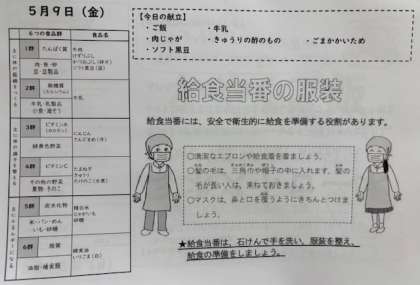 5月9日（金）
【今日の献立】
・ご飯　・牛乳
・肉じゃが　・きゅうりの酢のもの　・ごまかかいため
・ソフト黒豆
6つの食品群　食品名
1群　たんぱく質
肉・魚・卵
豆・豆製品
牛肉
2群　無機質
（カルシウム）
牛乳・乳製品
小魚・海そう
牛乳
3群　ビタミンA
（カロテン）
緑黄色野菜
にんじん
4群　ビタミンC
その他の野菜
果物・きのこ
たまねぎ
きゅうり
5群　炭水化物
米・パン・めん
いも・砂糖
精白米
じゃがいも
砂糖
6群　脂質
油脂・種実類
給食当番の服装
給食当番には、安全で衛生的に給食を準備する役割があります。
○清潔なエプロンや給食着を着ましょう。
○髪の毛は、三角巾や帽子の中に入れます。髪の
毛が長い人は、束ねておきましょう。
○マスクは、鼻と口を覆うようにきちんとつけま
しょう。
★給食当番は、石けんで手を洗い、服装を整え、
給食の準備をしましょう。